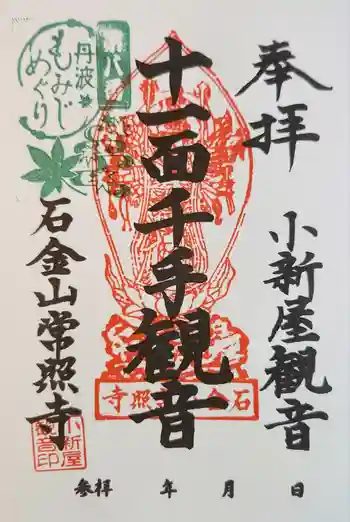 奉拝
小新屋観音
十一面千手観音
丹波
もみじ
めぐり
石金山常照寺
寺照
金石
小新屋
観音印
参拝 年 月 日